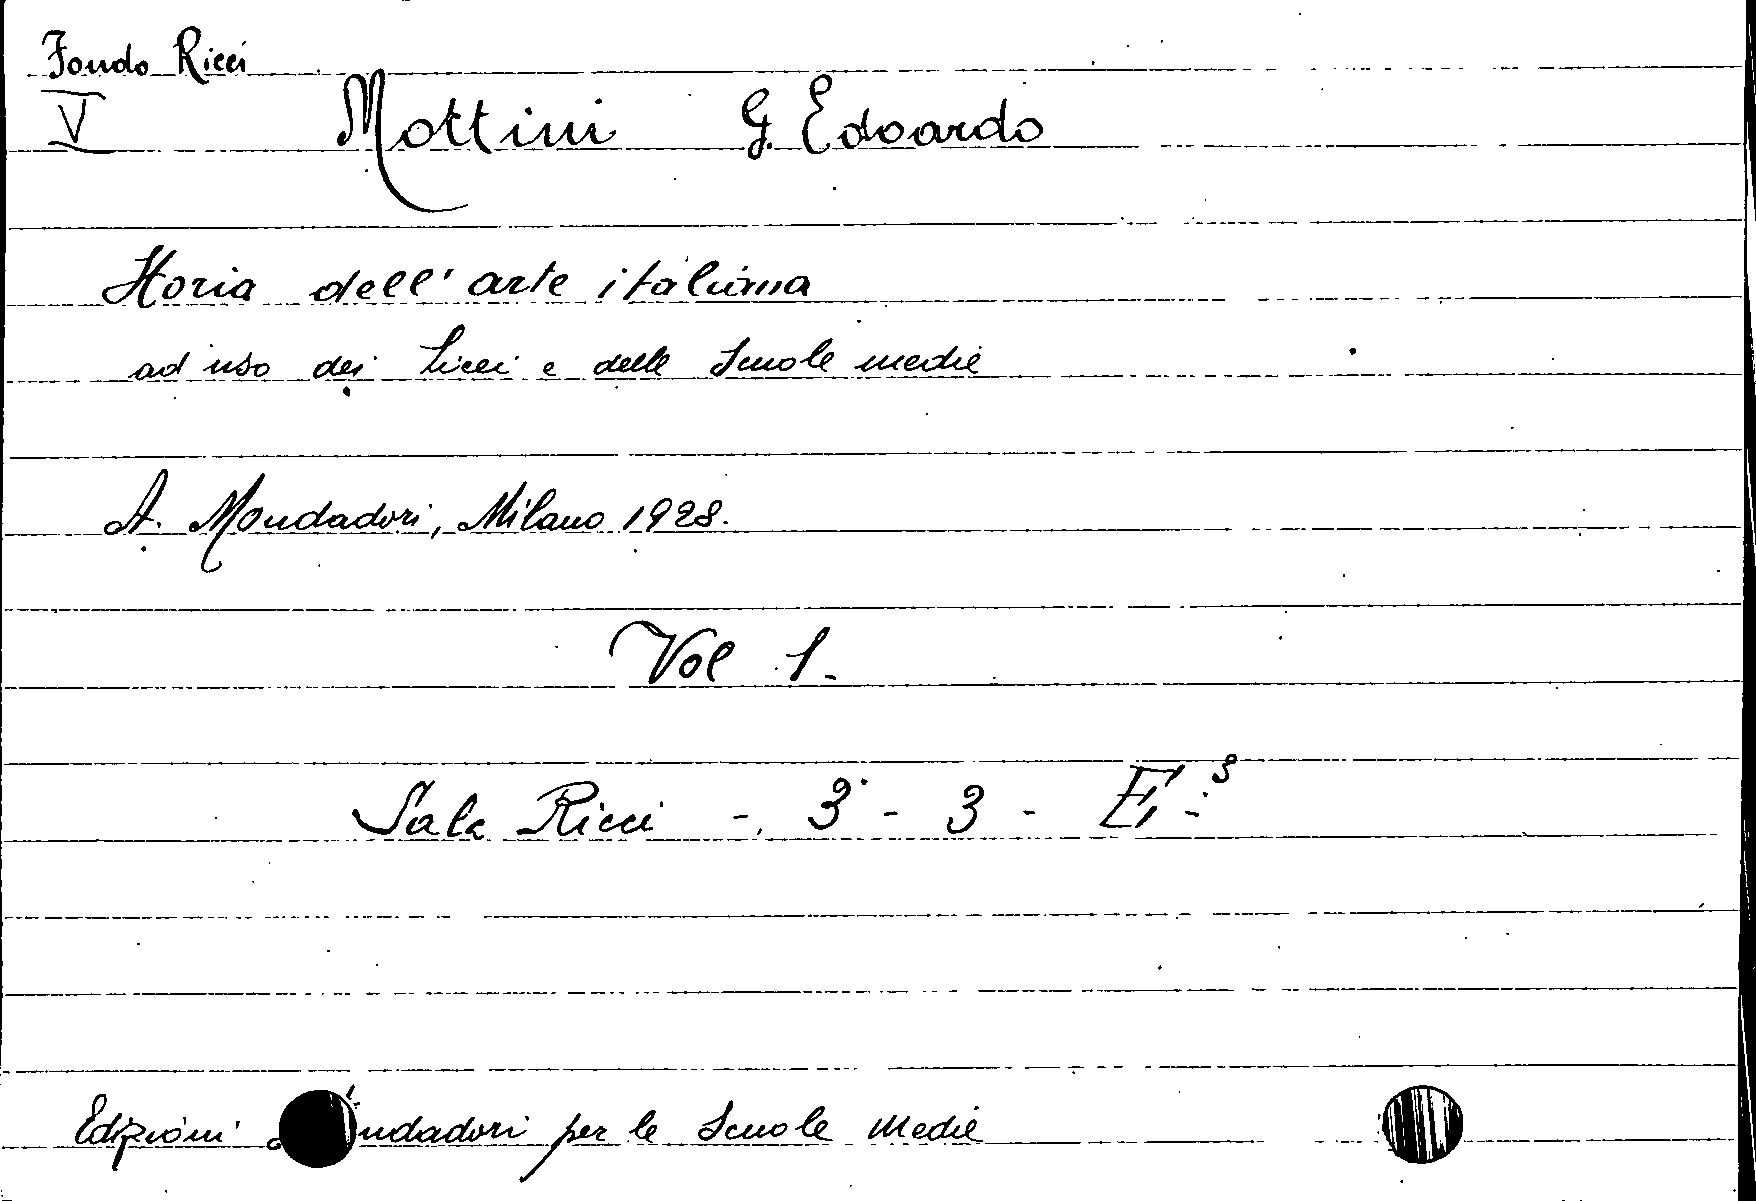 Fondo Ricci
V Mottini G. Edoardo
Storia dell'arte italiana
ad uso dei Licei e delle Scuole medie
A. Mondadori, Milano 1928.
Vol 1.
Sala Ricci - 3 - 3 - E - 3
Edizioni ndadori per le Scuole Medie